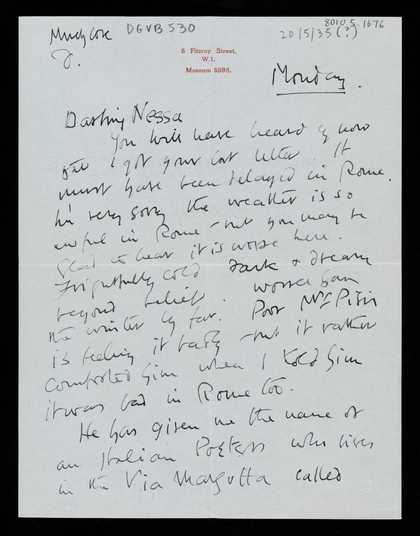 Much love
D.
DGVB 530
8010.5.1676
20/5/35 (?)
8 Fitzroy Street,
W.1.
Museum
Monday.
Darling Nessa
You will have heard by now
I got your last letter. It
must have been delayed in Rome.
I'm very sorry the weather is so
awful in Rome - but you may be
glad to hear it is worse here.
Frightfully cold dark & dreary
beyond belief. Worse than
the winter by far. Poor Mr Pitti
is feeling it badly - but it rather
comforted him when I told him
it was bad in Rome too.
He has given me the name of
an Italian Poetess who lives
in the Via Margutta called